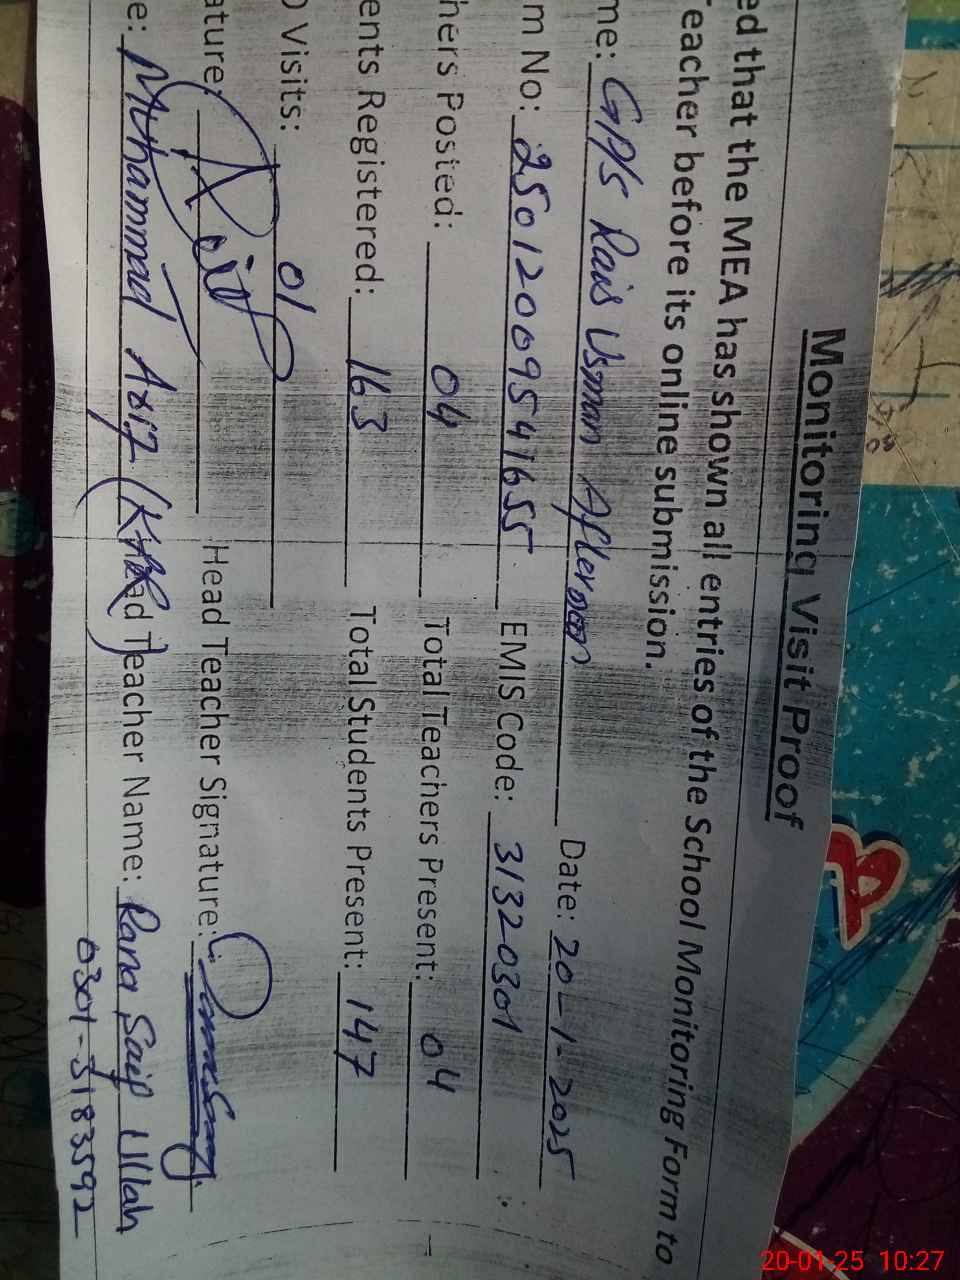 Monitoring Visit Proof
ed that the MEA has shown all entries of the School Monitoring Form to
Teacher before its online submission.
me: GPS Rais Usman Afternoon Date: 20-1-2025
m No: 2501200954 1655 EMIS Code: 31320301
hers Posted: 04 Total Teachers Present: 04
ents Registered: 163 Total Students Present: 147
Visits: 01
ature: Head Teacher Signature:
e: Muhammad Aziz Head Teacher Name: Rana Saif Ullah
0301-5183592
20-01-25 10:27